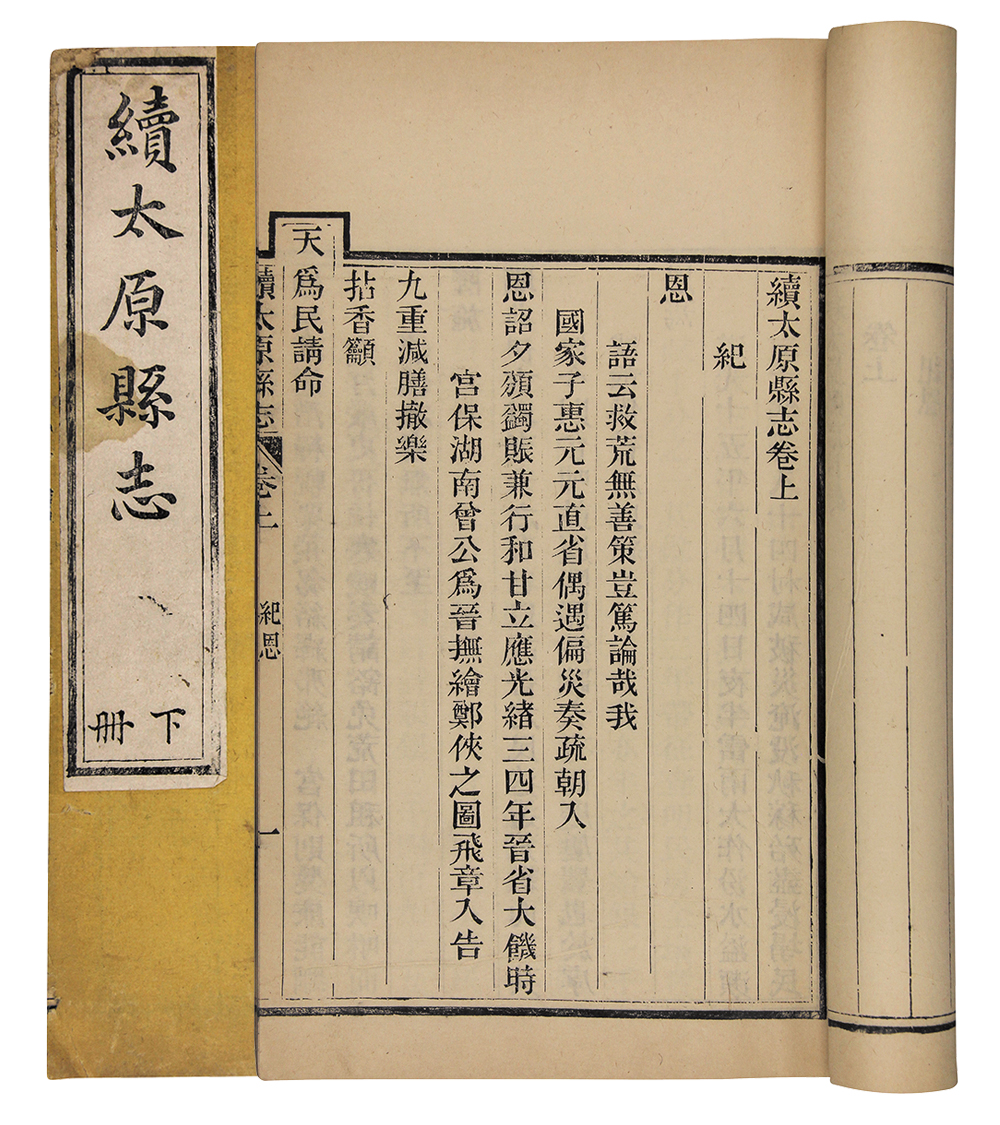 續太原縣志
下冊
續太原縣志卷上
紀
恩
語云救荒無善策豈篤論哉我
國家子惠元元直省偶遇偏災奏疏朝入
恩詔夕頒蠲賑兼行和甘立應光緒三四年晉省大饑時
宮保湖南曾公爲晉撫繪鄭俠之圖飛章入告
九重減膳撤樂
拈香籲
天爲民請命
續太原縣志 卷上 紀恩 一